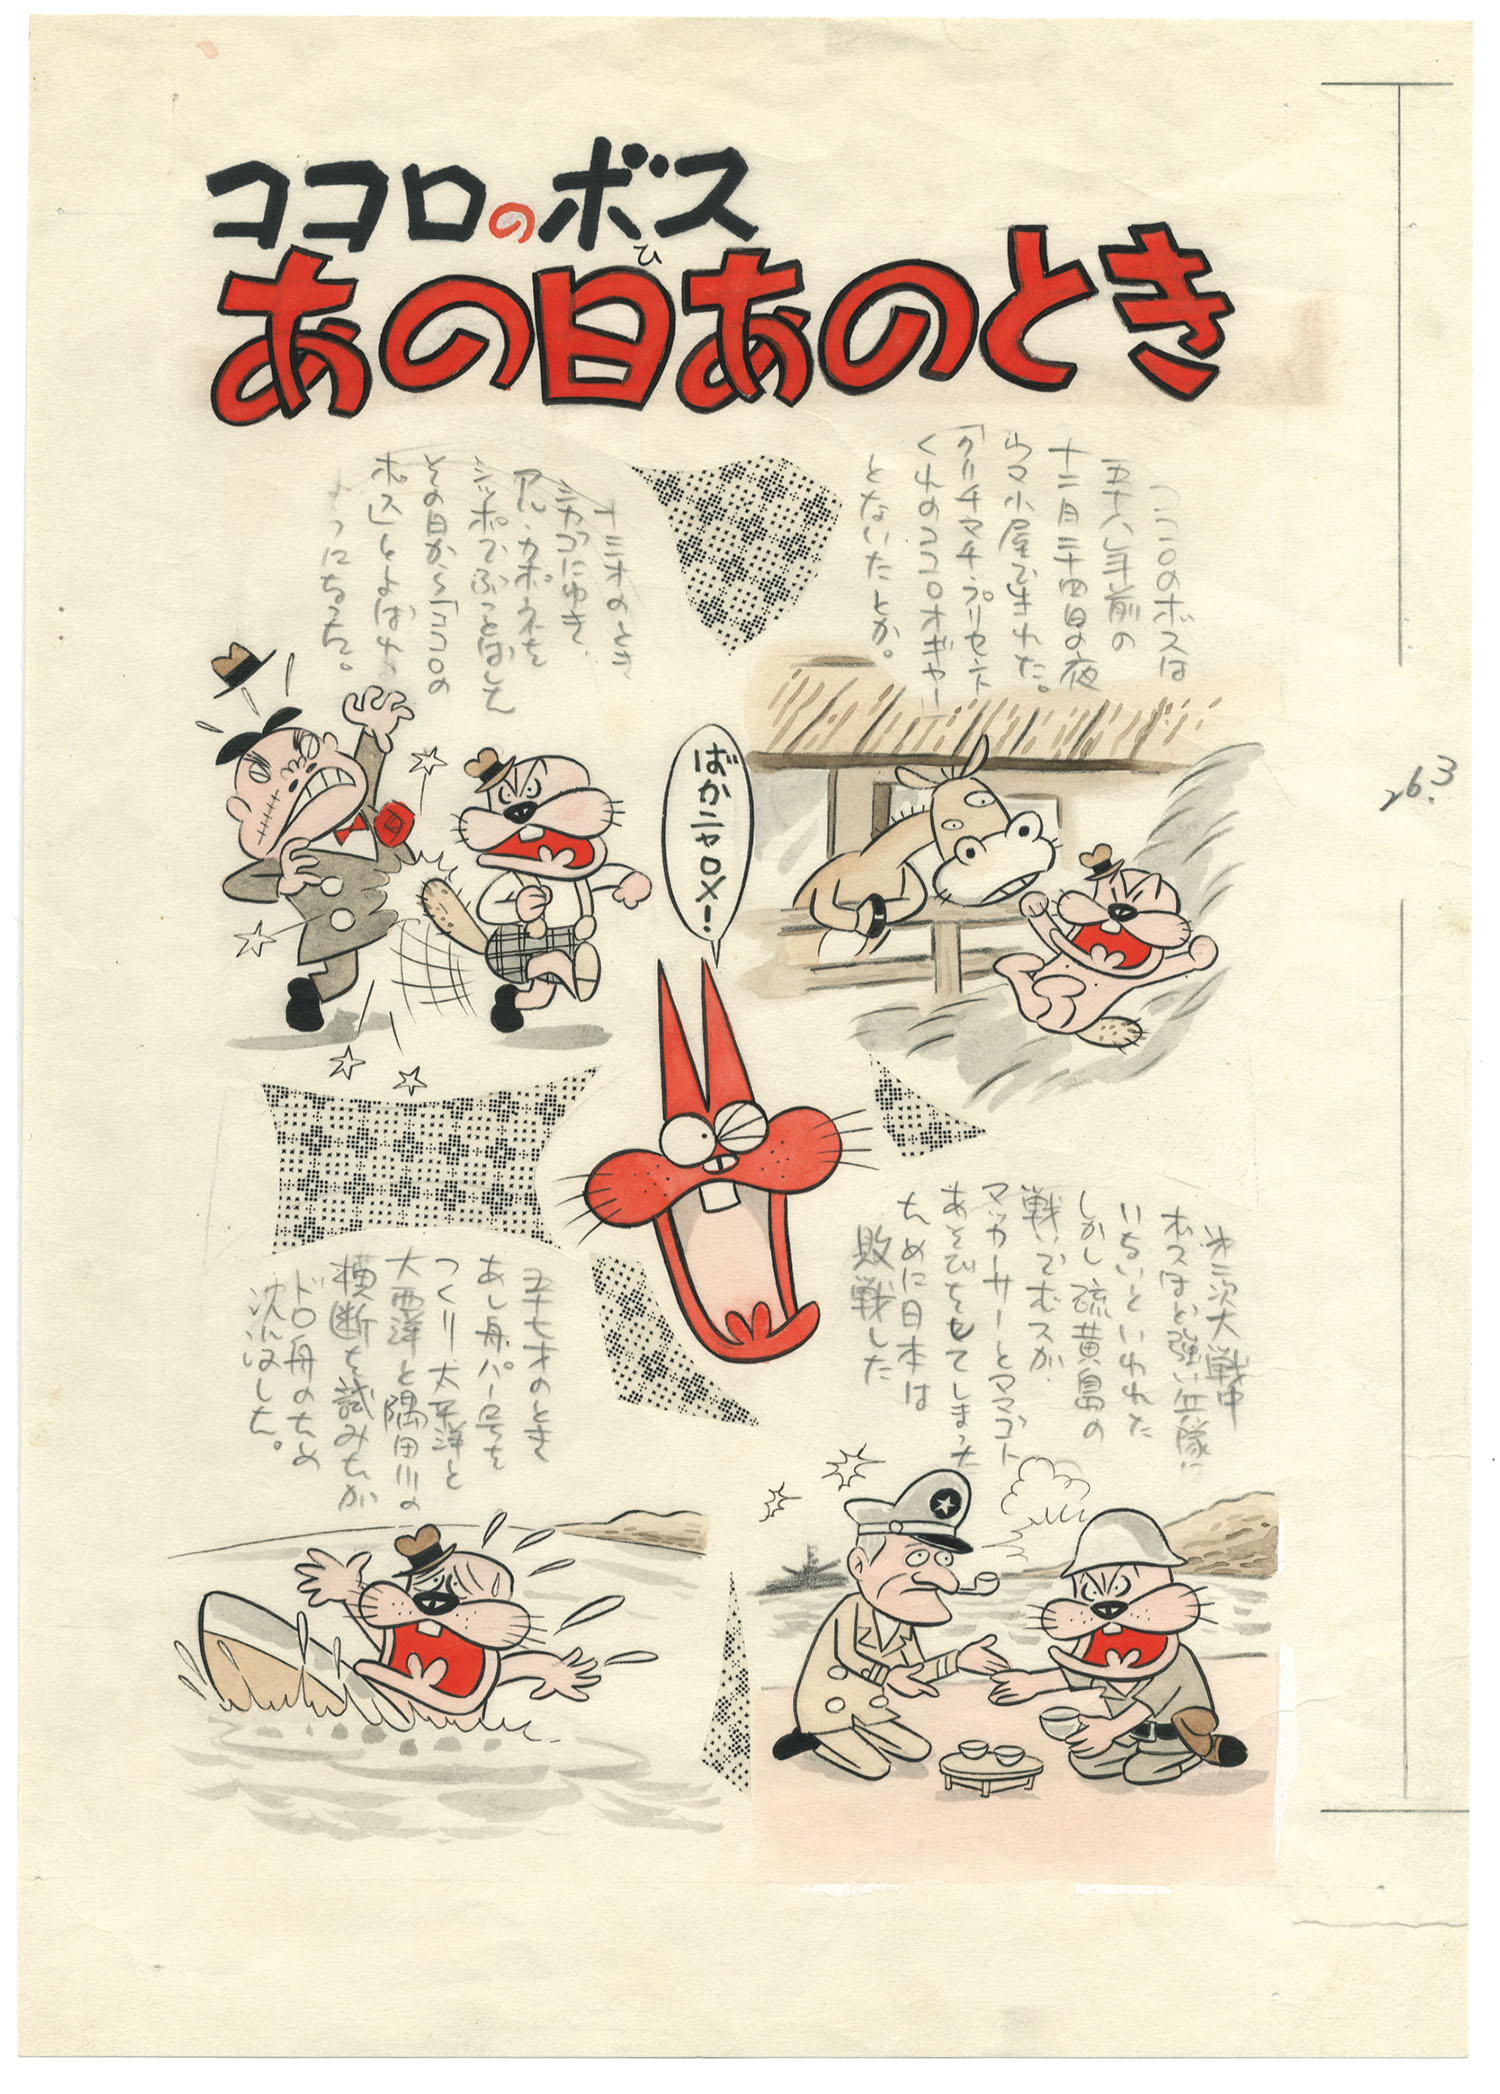 ココロのボス
あの日あのとき
ひ
ココロのボスは
五十八年前の
十二月二十四日の夜
ウマ小屋で生れた。
「クリチマチ・プリセント
くれのココロオギャー」
とないたとか。
十三才のとき
シカゴにゆき、
アル・カポネを
シッポでぶっとばしてん
その日から「ココロの
ボス」とよばれ
ようになった。
ばかニャロメ!
第二次大戦中
ボスほど強い兵隊は
いないといわれた
しかし硫黄島の
戦いでむスが、
マッカーサーとママゴト
あそびをしてしまった
ために日本は
敗戦した
五十七才のとき
あし舟パー号を
つくり太平洋と
大西洋と隅田川の
横断を試みたが
ドロ舟のため
沈没した。
26.3